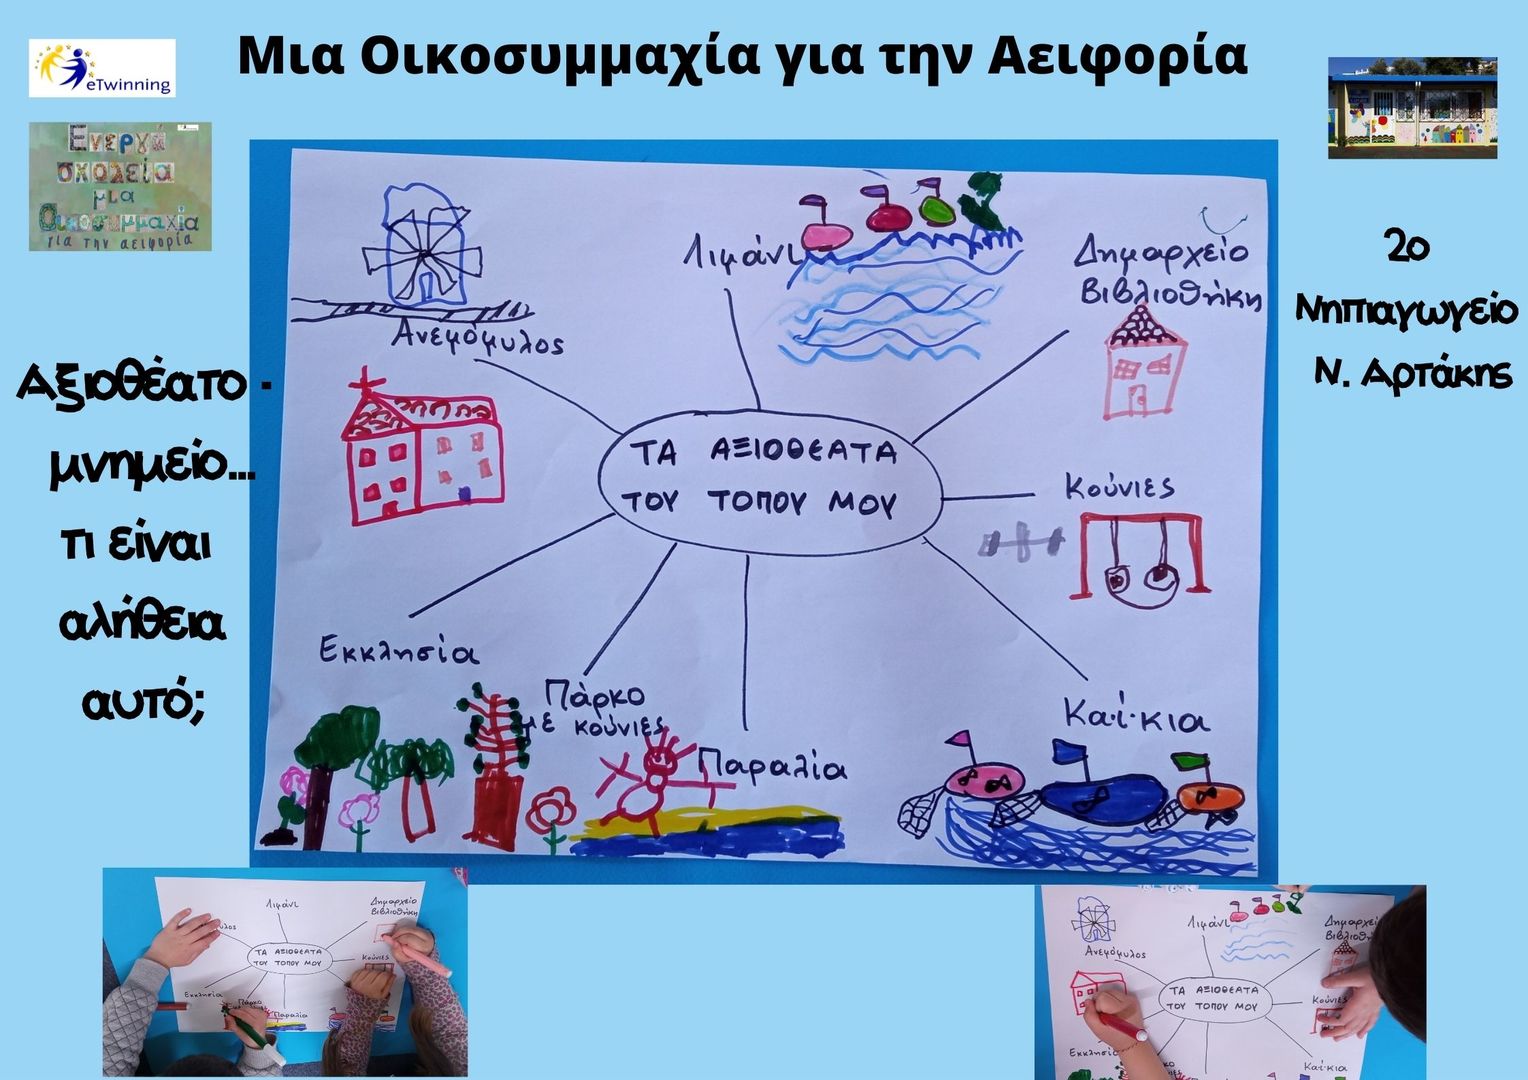 Μια Οικοσυμμαχία για την Αειφορία
eTwinning
Ενεργά
σχολεία
μια
Οικοσυμμαχία
για την αειφορία
2ο
Νηπιαγωγείο
Ν. Αρτάκης
Αξιοθέατο -
μνημείο...
τι είναι
αλήθεια
αυτό;
Ανεμόμυλος
Λιμάνι
Δημαρχείο
Βιβλιοθήκη
ΤΑ ΑΞΙΟΘΕΑΤΑ
ΤΟΥ ΤΟΠΟΥ ΜΟΥ
Κούνιες
Εκκλησία
Πάρκο
με κούνιες
Παραλία
Κα·ί·κια
Λιμάνι
Δημαρχείο
Βιβλιοθήκη
υλος
ΤΑ ΑΞΙΟΘΕΑΤΑ
ΤΟΥ ΤΟΠΟΥ ΜΟΥ
Κούνιες
Εκκλησία
Πάρκο
Παραλία
Λιμάνι
Δημαρχείο
Βιβλιοθ
Ανεμόμυλος
ΤΑ ΑΞΙΟΘΕΑΤΑ
ΤΟΥ ΤΟΠΟΥ ΜΟΥ
Κούνιες
Εκκλησί
Κα·ί·κια